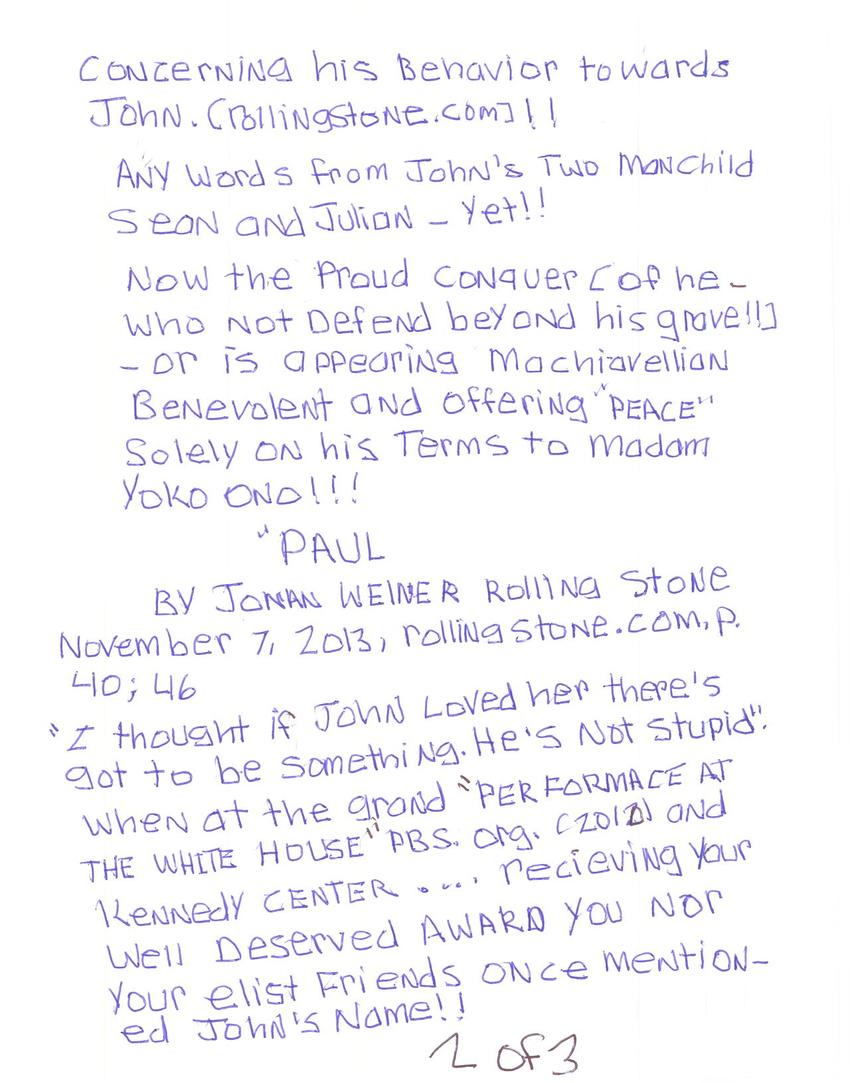 Concerning his Behavior towards
John. [rollingstone.com]!!
Any words from John's Two Manchild
Sean and Julian - Yet!!
Now the Proud conquer [of he -
who not Defend beyond his grave!!]
- or is appearing Machiavellian
Benevolent and offering "PEACE"
Solely on his Terms to Madam
YOKO ONO!!!
"PAUL
BY JONAN WEINER Rolling Stone
November 7, 2013, rollingstone.com, p.
40; 46
"I thought if John Loved her there's
got to be something. He's Not Stupid".
when at the grand "PERFORMACE AT
THE WHITE HOUSE" PBS. org. (2010) and
Kennedy CENTER .... recieving your
well Deserved AWARD you Nor
Your elist Friends once mention-
ed John's Name!!
2 of 3